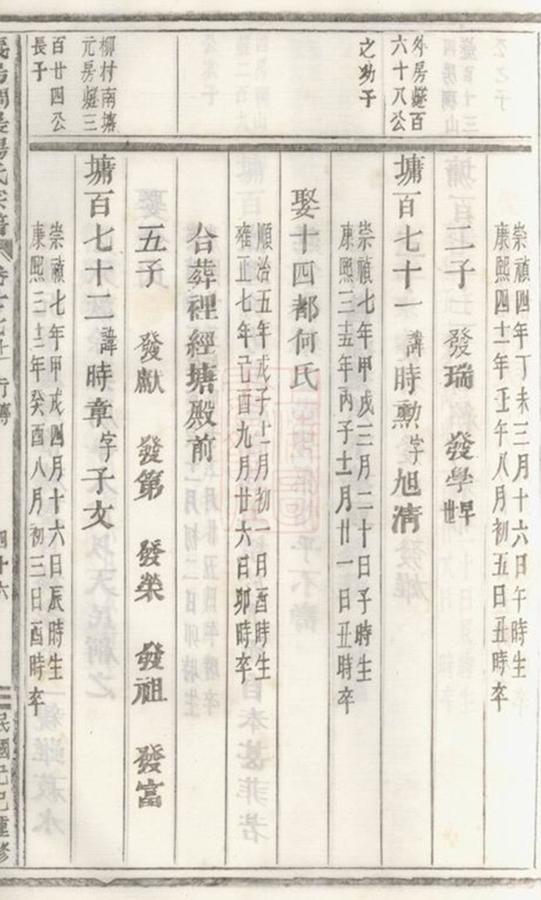 崇禎四年丁未三月十六日午時生
康熙四十一年壬午八月初五日丑時卒
二子 發瑞 發學早世
外房燧百
六十八公
之幼子
塘百七十一諱時勳字旭清
崇禎七年甲戌三月二十日子時生
康熙三五年丙子十二月廿一日丑時卒
娶十四都何氏
順治五年戊子十二月初一日酉時生
雍正七年己酉九月廿六日卯時卒
合葬裡經塘殿前
五子 發獻 發第 發榮 發祖 發富
柳村南塘
元房燧三
百廿四公
長子
塘百七十二諱時章字子文
崇禎七年甲戌四月十六日辰時生
康熙三十二年癸酉八月初三日酉時卒
楊氏宗譜
行傳
四十六
民國己巳重修